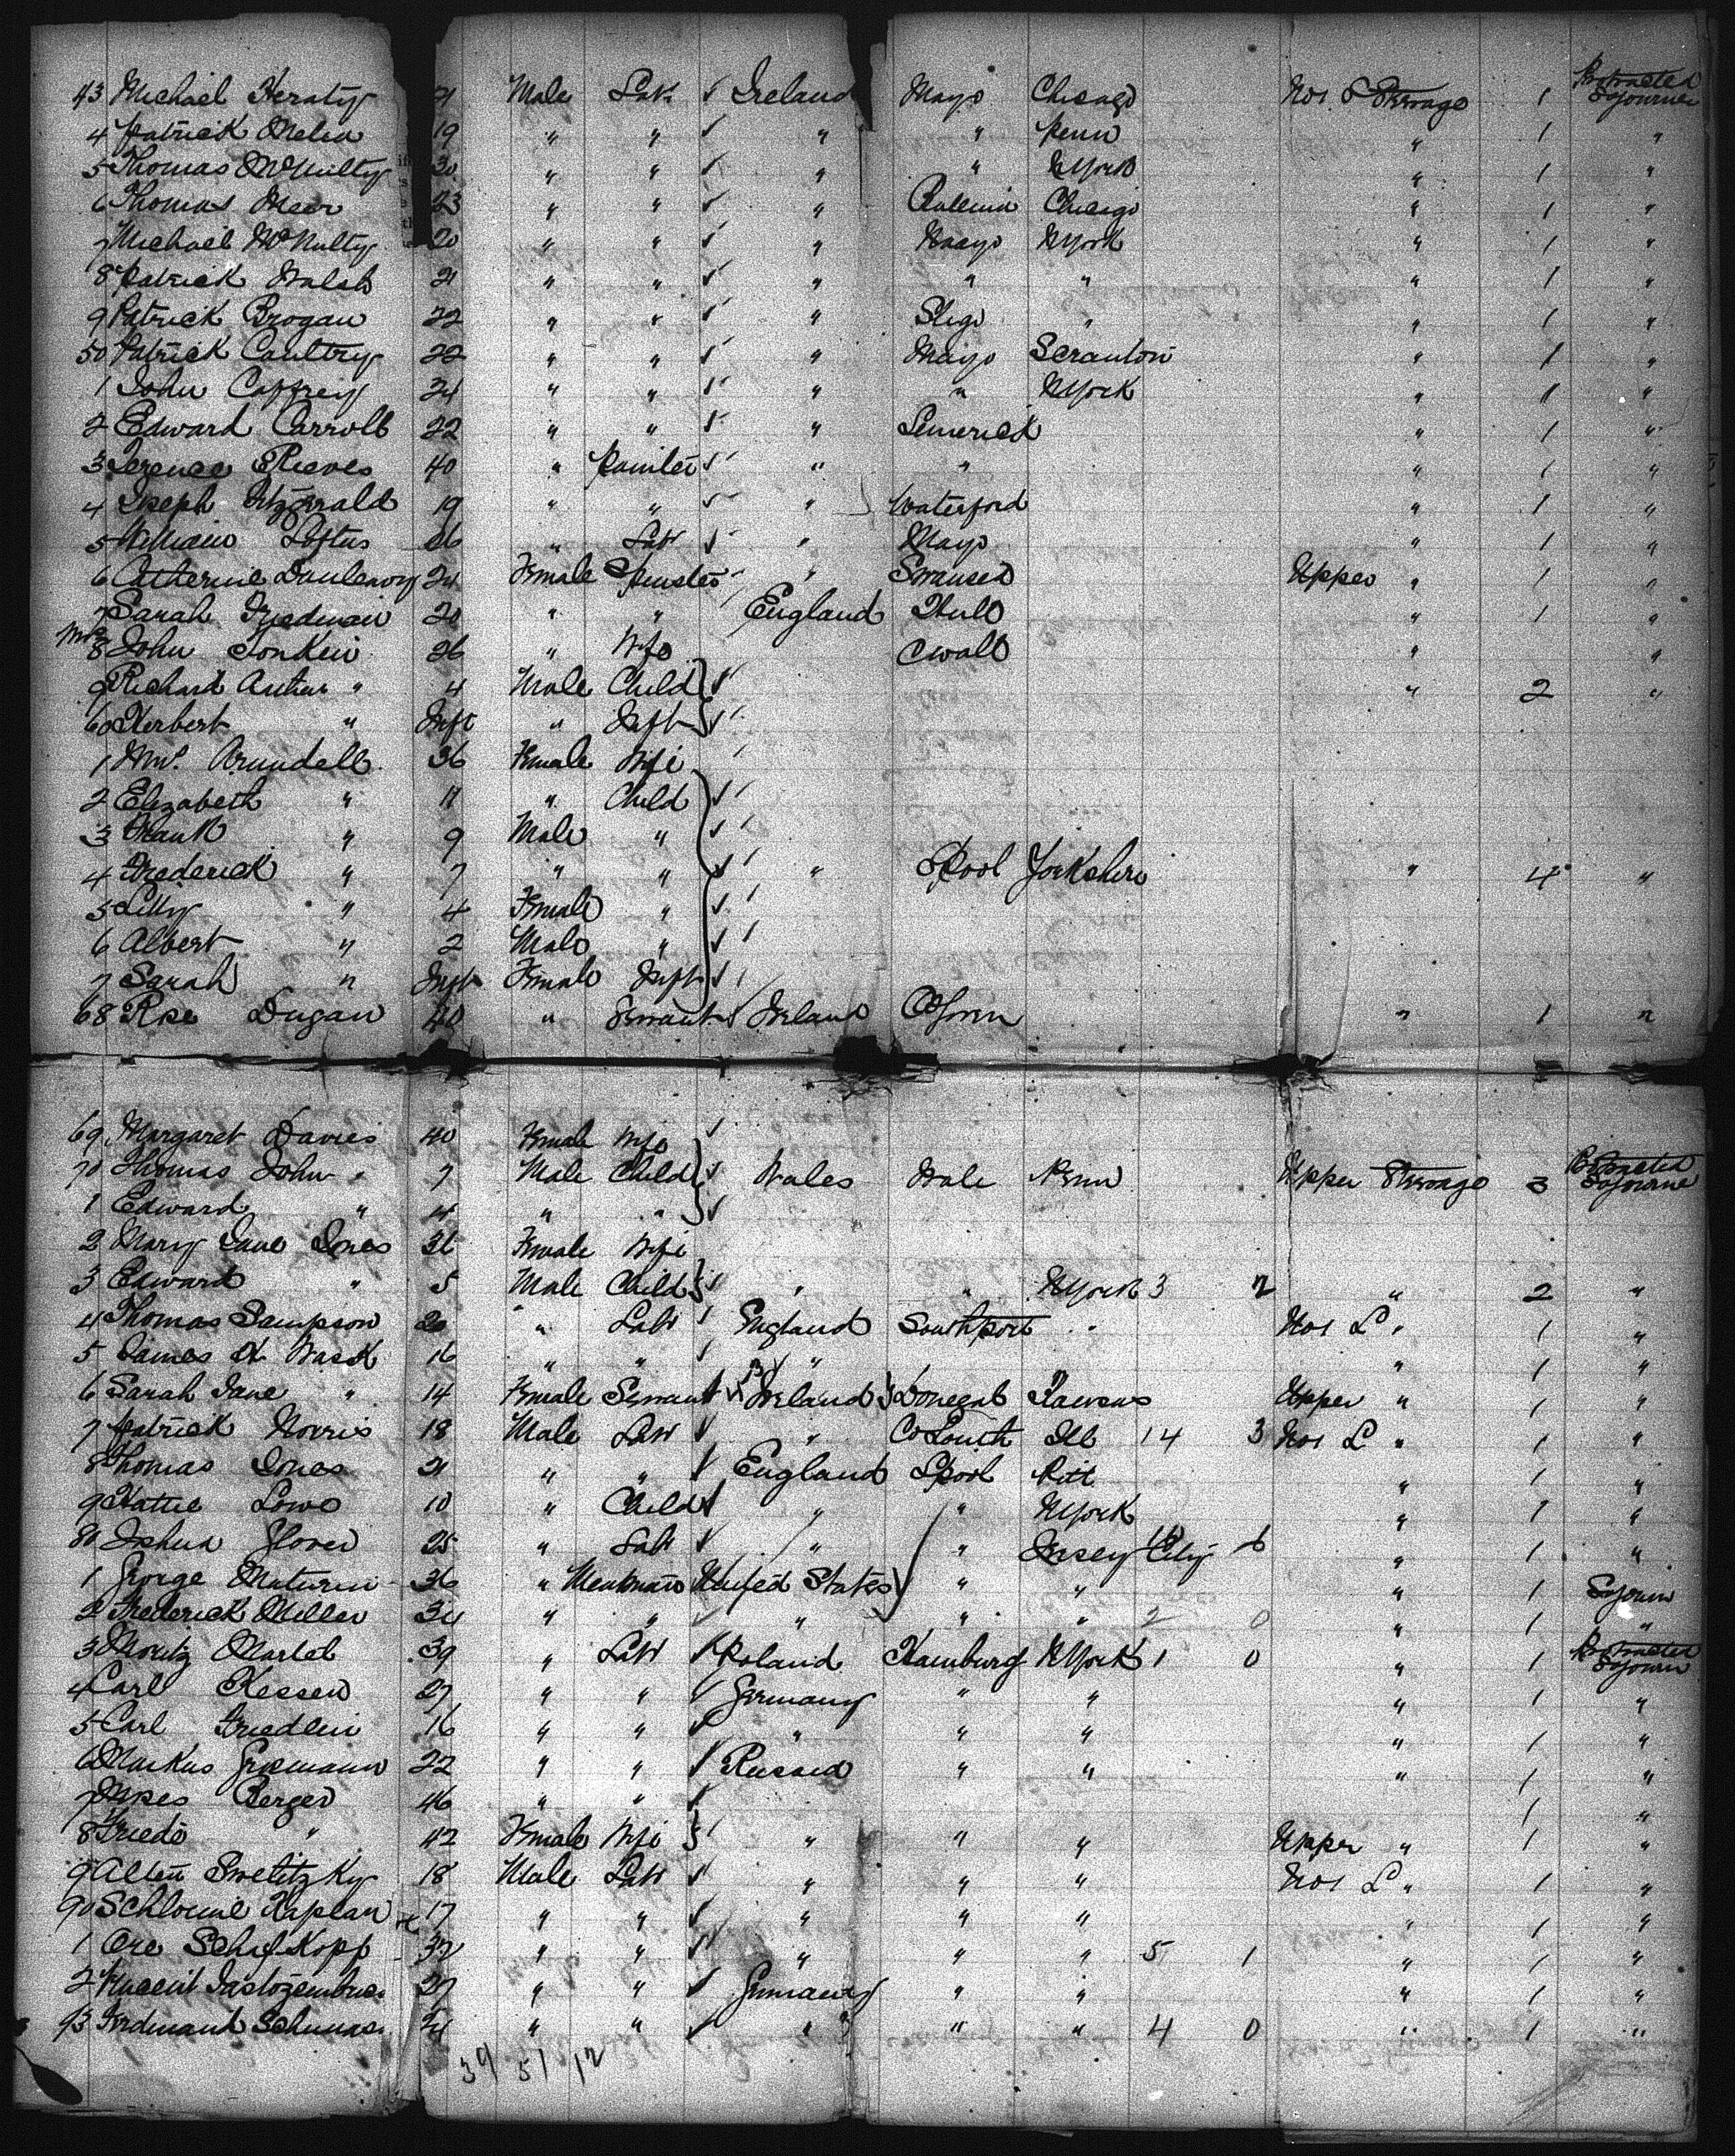 43 Michael Heraty 21 Male Lab ✓ Ireland Mayo Chicago No1 L Steerage 1 Protracted Sojourn
4 Patrick 19 " " ✓ " " Penn " 1 "
5 Thomas McNulty 30 " " ✓ " " N York " 1 "
6 Thomas 23 " " ✓ " Chicago " 1 "
7 Michael McNulty 20 " " ✓ " Mayo N York " 1 "
8 Patrick Walsh 21 " " ✓ " " " " 1 "
9 Patrick Brogan 22 " " ✓ " Sligo " " 1 "
50 Patrick Caultry 22 " " ✓ " Mayo Scranton " 1 "
1 John Caffrey 24 " " ✓ " " N York " 1 "
2 Edward Carroll 22 " " ✓ " Limerick " 1 "
3 Terence Reeves 40 " Painter ✓ " " " 1 "
4 Joseph Fitzgerald 19 " " ✓ " Waterford " 1 "
5 William Loftus 26 " Lab ✓ " Mayo " 1 "
6 Catherine Dunleavy 24 Female Spinster " Swansea Upper " 1 "
7 Sarah Friedman 20 " " England Hull " 1 "
Mrs 8 John Tonkin 26 " Wife Cwall " "
9 Richard Arthur " 4 Male Child ✓ " 2 "
60 Herbert " Inft " Inft ✓
1 Mrs. Arundell 36 Female Wife
2 Elizabeth " 11 " Child ✓
3 Frank " 9 Male " ✓
4 Frederick " 7 " " ✓ " Lpool Yorkshire " 4 "
5 Lilly " 4 Female " ✓
6 Albert " 2 Male " ✓
7 Sarah " Inft Female Inft ✓
68 Rose Dugan 40 " Servant ✓ Ireland " 1 "
69 Margaret Davies 40 Female Wife ✓
70 Thomas John " 7 Male Child ✓ Wales Penn Upper Steerage 3 Protracted Sojourn
1 Edward " 4 " " ✓
2 Mary Jane Jones 36 Female Wife
3 Edward " 5 Male Child ✓ " " N York 3 2 " 2 "
4 Thomas Sampson 20 " Lab ✓ England Southport " No1 L " 1 "
5 James 16 " " ✓ " " 1 "
6 Sarah Jane " 14 Female Servant ✓ Ireland Donegal Kansas Upper " 1 "
7 Patrick Norris 18 Male Lab ✓ " Co Louth Ill 14 3 No1 L " 1 "
8 Thomas Jones 21 " " ✓ England Lpool Pitt " 1 "
9 Hattie Lowe 10 " Child ✓ " " N York " 1 "
80 Joshua Glover 25 " Lab ✓ " " Jersey City 6 " 1 "
1 George Maturin 36 " United States " " " 1 Sojourn
2 Frederick Miller 34 " " ✓ " " " 2 0 " 1 "
3 Moritz Martel 39 " Lab ✓ Poland Hamburg N York 1 0 " 1 Protracted Sojourn
4 Carl Kessen 27 " " ✓ Germany " " " 1 "
5 Carl Friedlein 16 " " ✓ " " " " 1 "
6 Markus 22 " " ✓ Russia " " " 1 "
7 Moses Berger 46 " " ✓ 1 "
8 Friede " 42 Female Wife " " " Upper " 1 "
9 Swelitzky 18 Male Lab ✓ " " " No1 L " 1 "
90 Schloime Kaplan 17 " " ✓ " " " " 1 "
1 Ore Schefkopp 32 " " ✓ " " " 5 1 " 1 "
2 27 " " ✓ Germany " " " 1 "
93 Ferdinand 21 " " ✓ " " " 4 0 " 1 "
39 51 12